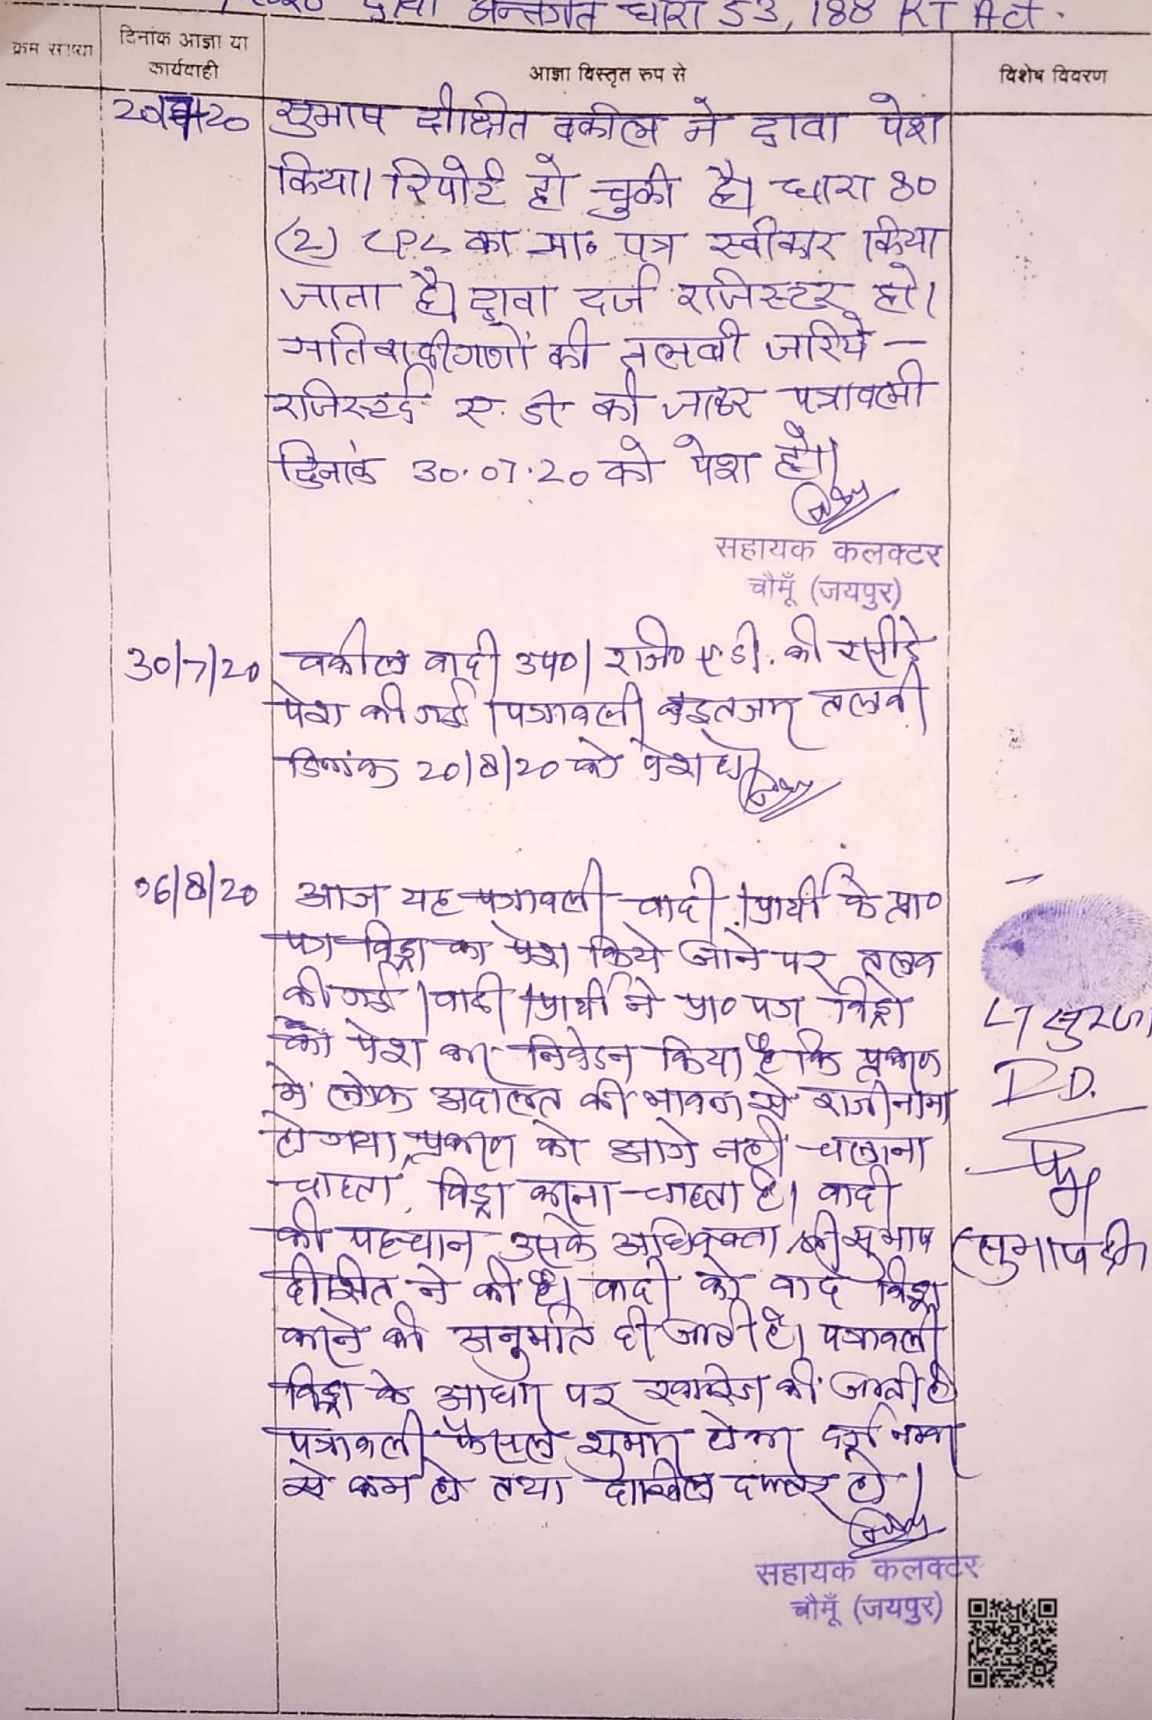 दावा अन्तर्गत धारा 53, 188 RT Act.
क्रम संख्या
दिनांक आज्ञा या
कार्यवाही
आज्ञा विस्तृत रुप से
विशेष विवरण
सुभाष दीक्षित वकील ने दावा पेश
किया। रिपोर्ट हो चुकी है। धारा 80
(2) CPC का प्रा० पत्र स्वीकार किया
जाता है। दावा दर्ज रजिस्टर हो।
प्रतिवादीगणों की तलबी जरिये –
रजिस्टर्ड ए.डी की जाकर पत्रावली
दिनांक 30.07.20 को पेश हो।
सहायक कलक्टर
चौमूँ (जयपुर)
30/7/20 वकील वादी उप०। रजि० ए.डी. की रसीदे
पेश की गई। पत्रावली इंतजार तलबी
दिनांक 20/8/20 को पेश हो
06/8/20 आज यह पत्रावली वादी/प्रार्थी के प्रा०
पत्र विड्रा का पेश किये जाने पर तलब
की गई। वादी/प्रार्थी ने प्रा० पत्र विड्रो
का पेश कर निवेदन किया है कि प्रकरण
मे लोक अदालत की भावना से राजीनामा
हो गया, प्रकरण को आगे नही चलाना
चाहता, विड्रा करना चाहता है। वादी
की पहचान उसके अधिवक्ता श्री सुभाष
दीक्षित ने की है। वादी को वाद विड्रा
करने की अनुमति दी जाती है। पत्रावली
विड्रा के आधार पर खारिज की जाती है
पत्रावली फैसल शुमार होकर दर्ज नम्बर
से कम हो तथा दाखिल दफ्तर हो।
सहायक कलक्टर
चौमूँ (जयपुर)